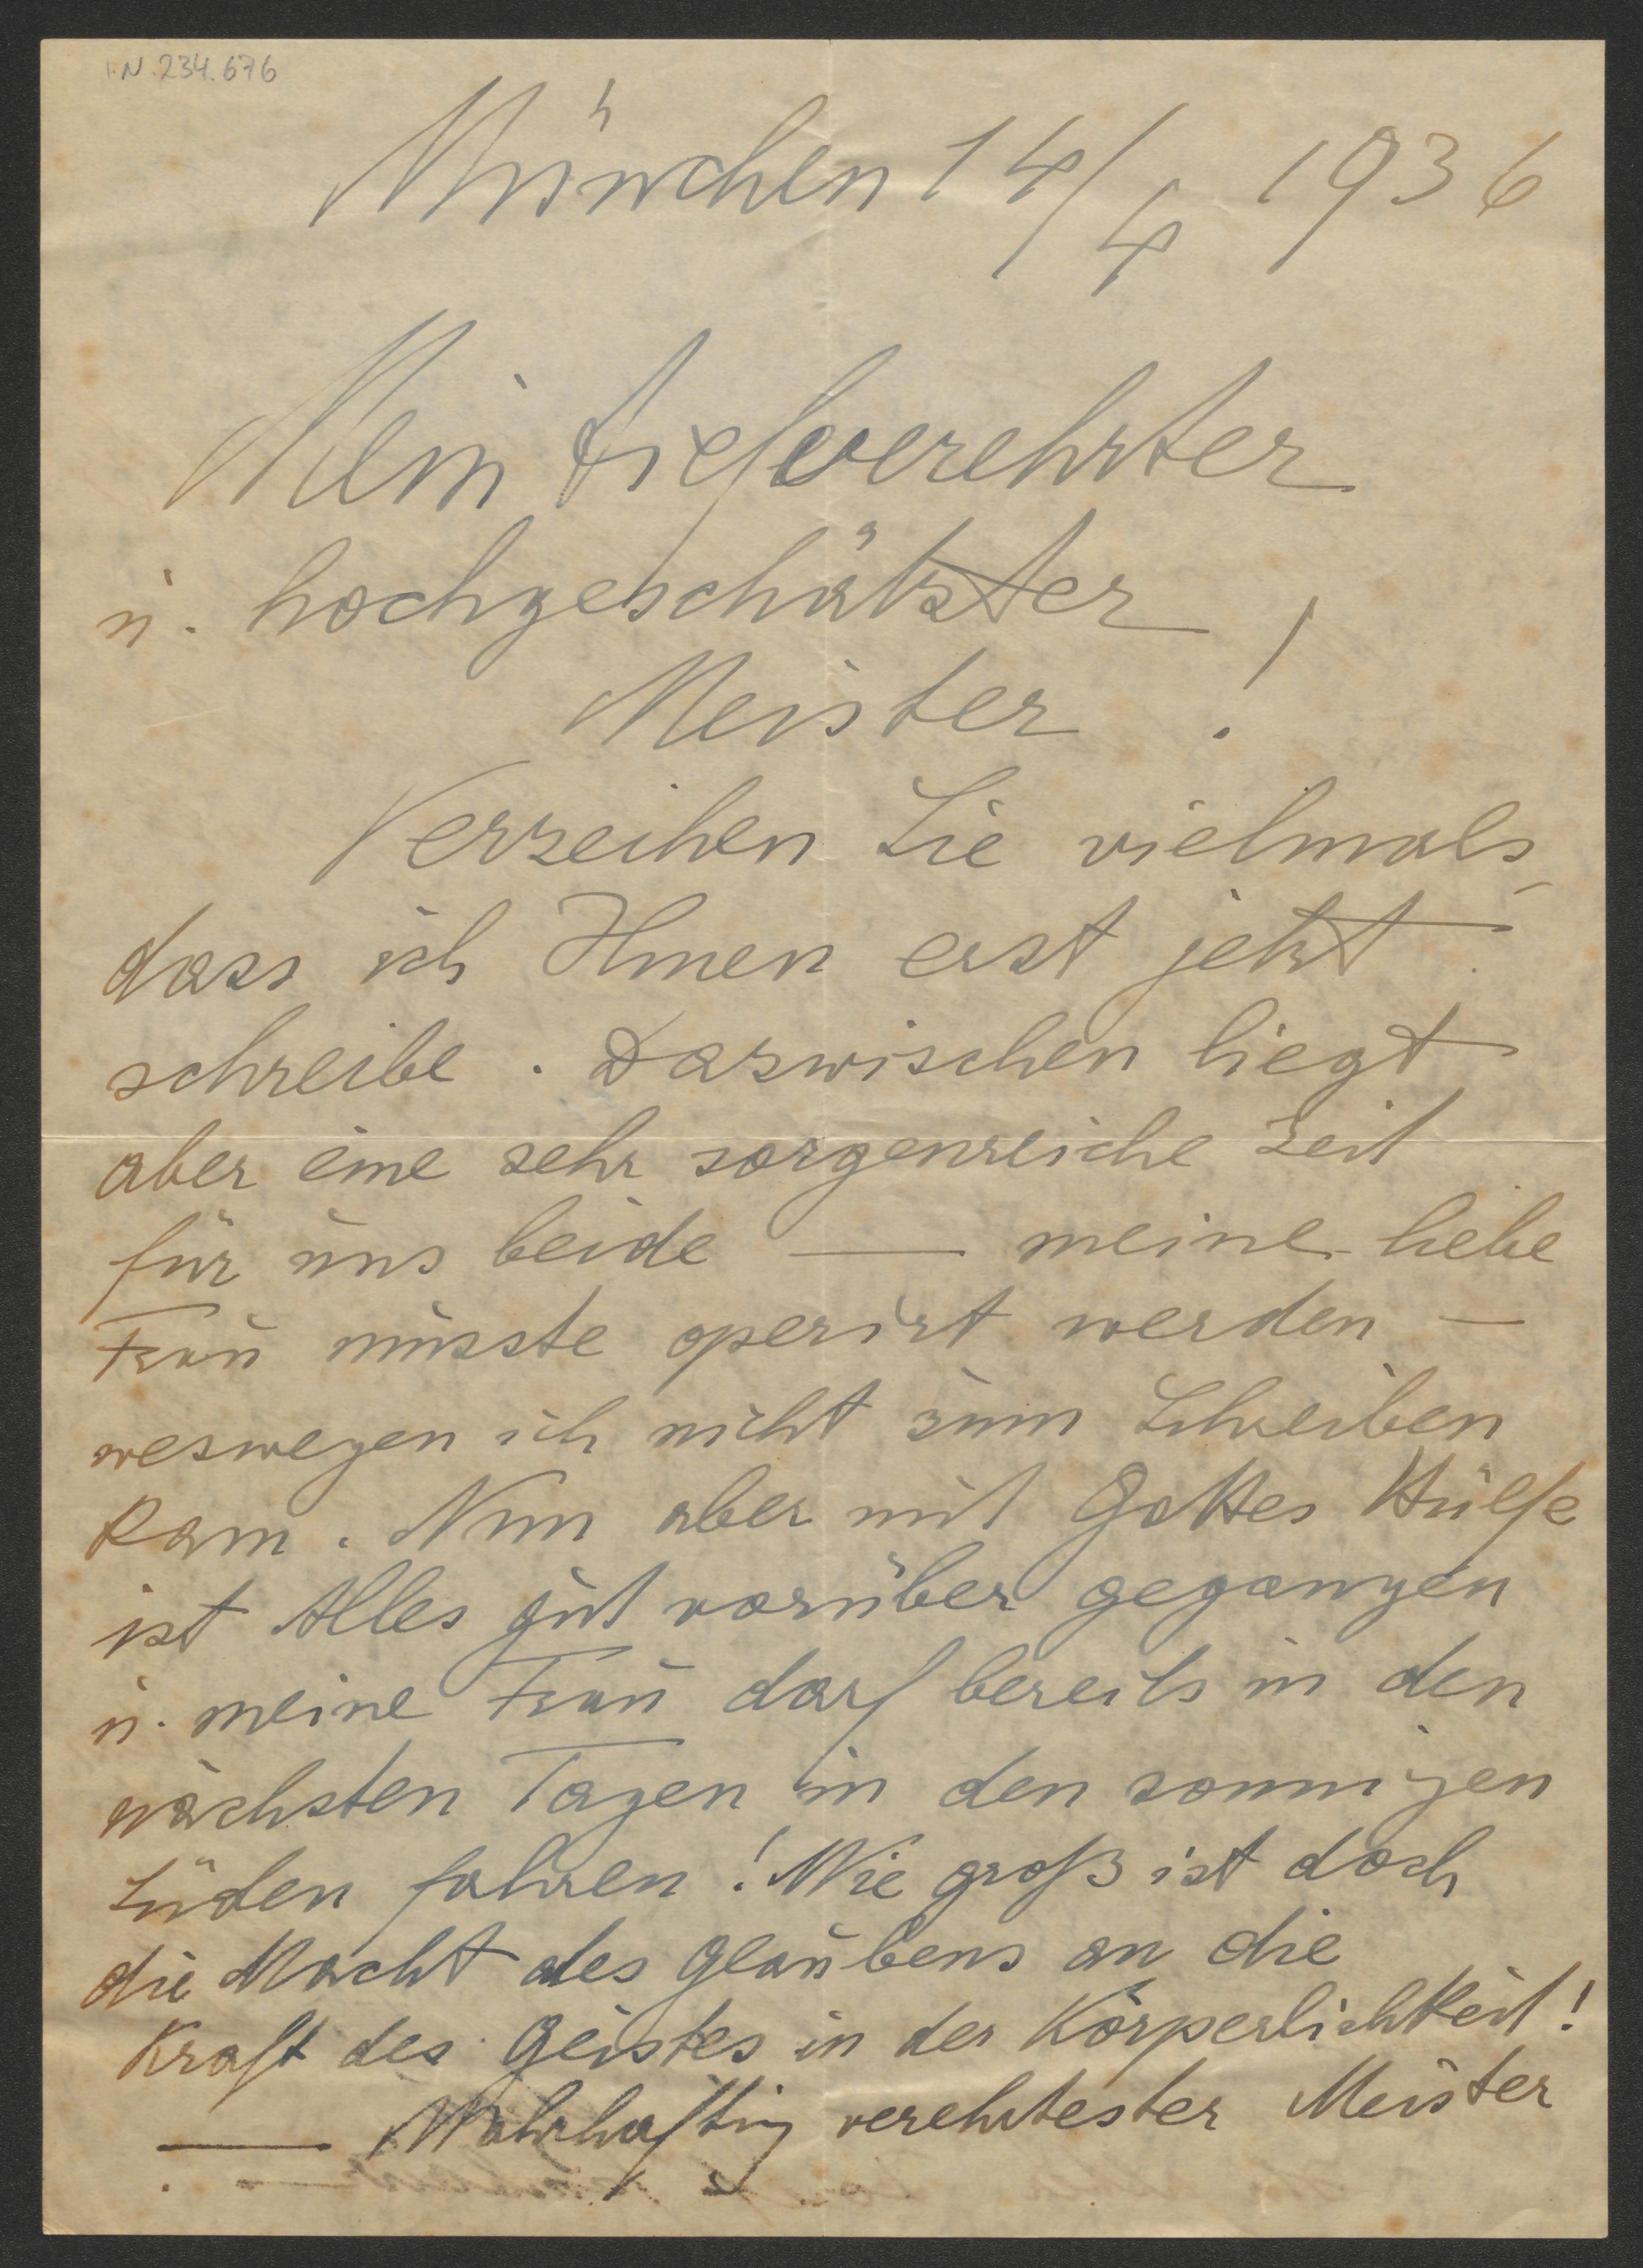 I.N. 234.676
München 14/4 1936
Mein tiefverehrter
u. hochgeschätzter
Meister !
Verzeihen Sie vielmals,
dass ich Ihnen erst jetzt
schreibe. Dazwischen liegt
aber eine sehr sorgenreiche Zeit
für uns beide — meine liebe
Frau musste operirt werden —
weswegen ich nicht zum Schreiben
kam. Nun aber mit Gottes Hülfe
ist Alles gut vorüber gegangen
u. meine Frau darf bereits in den
nächsten Tagen in den sonnigen
Süden fahren! Wie groß ist doch
die Macht des Glaubens an die
Kraft des Geistes in der Körperlichkeit!
— Wahrhaftig verehrtester Meister